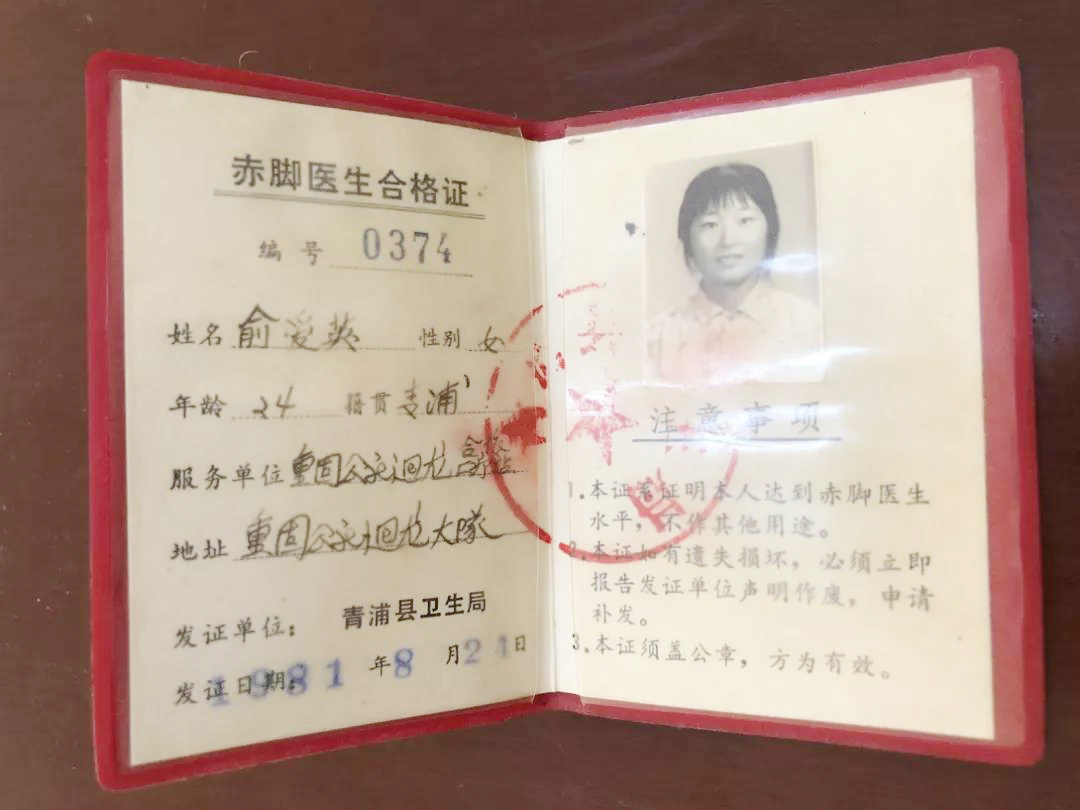 赤脚医生合格证
编号 0374
姓名 俞爱英 性别 女
年龄 24 籍贯 青浦
服务单位 重固公社回龙
地址 重固公社回龙大队
发证单位： 青浦县卫生局
发证日期： 1981年8月24日
注意事项
1.本证系证明本人达到赤脚医生
水平，不作其他用途。
2.本证如有遗失损坏，必须立即
报告发证单位声明作废，申请
补发。
3.本证须盖公章，方为有效。